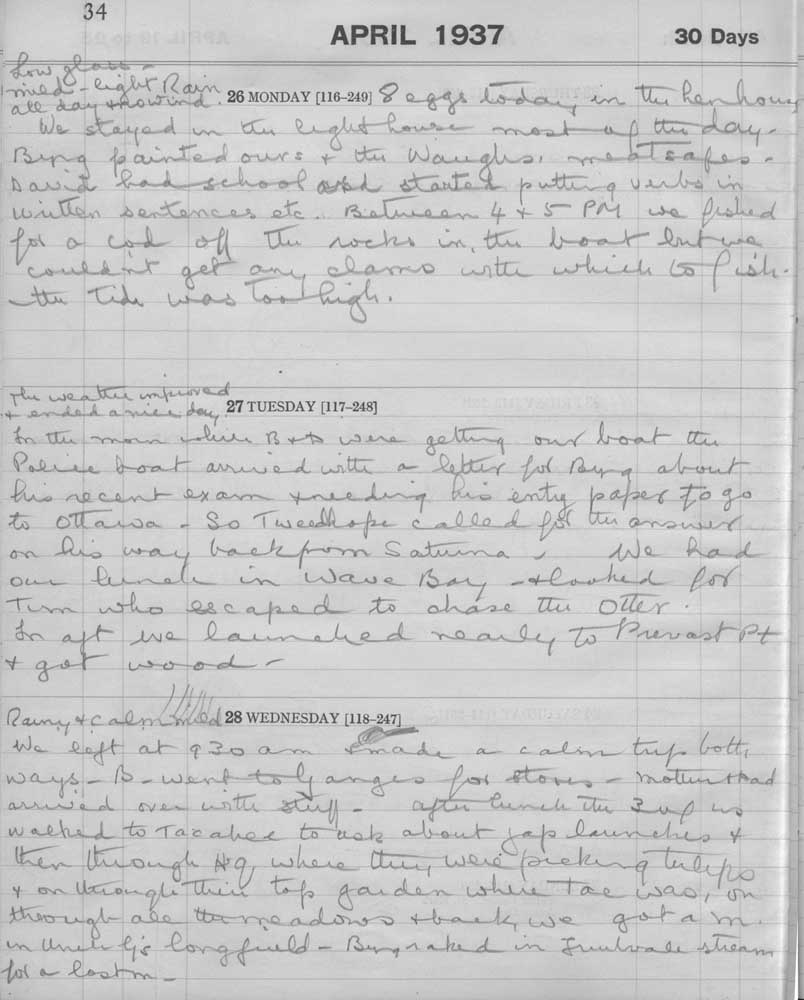 34
APRIL 1937
30 Days
Low glass -
mild - light Rain
all day & no wind.
26 MONDAY [116-249] 8 eggs today in the hen house
We stayed in the light house most of the day -
Bing painted ours & the Waughs, meatsafes -
David had school and started putting verbs in
written sentences etc. Between 4 & 5 PM we fished
for a cod off the rocks in the boat but we
couldn't get any clams with which to fish.
- the Tide was Too high.
The weather improved
& ended a nice day
27 TUESDAY [117-248]
In the morn while B & D were getting our boat the
Police boat arrived with a letter for Bing about
his recent exam & needing his entry paper to go
to Ottawa - So Tweedhope called for the answer
on his way back from Saturna - We had
our lunch in Wave Bay - & looked for
Tim who escaped to chase the Otter.
In aft we launched nearly to Prevost Pt
& got wood -
Rainy & calm mild
28 WEDNESDAY [118-247]
We left at 9 30 am & made a calm trip both
ways - B - went to Ganges for stores - Mother & Dad
arrived over with stuff - after lunch the 3 of us
walked to Tacahee to ask about jap launches &
then through Hq, where they were picking tulips
& on through their top garden where Tae was, on
through all the meadows & back, we got a m.
in Uncle G's longfield - Bing raked in Fruitvale stream
for a lost m -